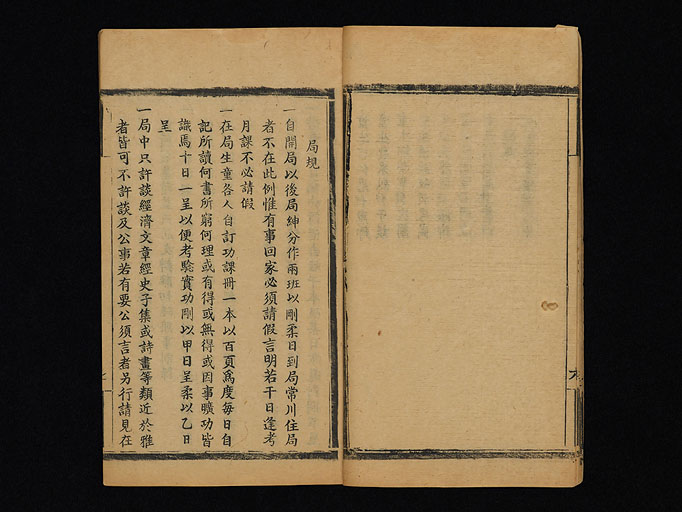 局規
一自開局以後局紳分作兩班以剛柔日到局常川住局
者不在此例惟有事回家必須請假言明若干日逢考
月課不必請假
一在局生童各人自訂功課冊一本以百頁爲度每日自
記所讀何書所窮何理或有得或無得或因事曠功皆
識焉十日一呈以便考驗實功剛以甲日呈柔以乙日
呈
一局中只許談經濟文章經史子集或詩畫等類近於雅
者皆可不許談及公事若有要公須言者另行請見在